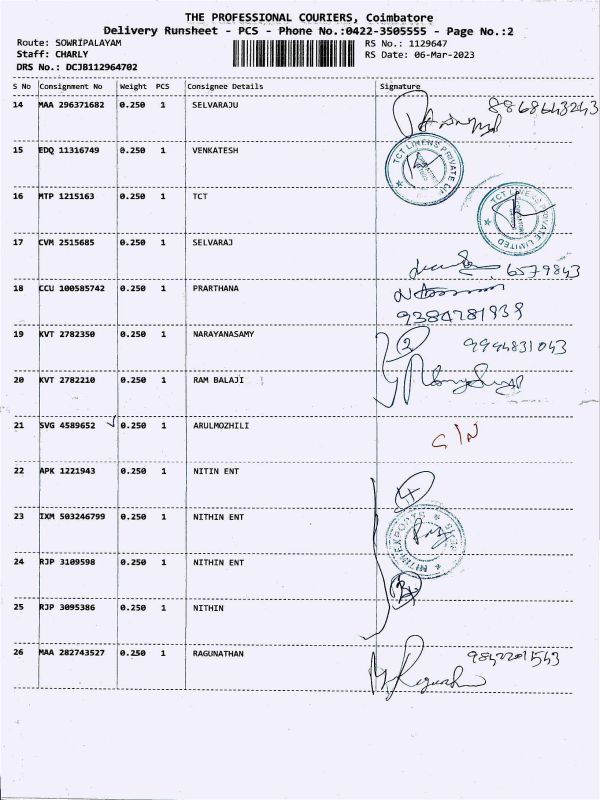 THE PROFESSIONAL COURIERS, Coimbatore
Delivery Runsheet - PCS - Phone No.:0422-3505555 - Page No.:2
Route: SOWRIPALAYAM RS No.: 1129647
Staff: CHARLY RS Date: 06-Mar-2023
DRS No.: DCJB112964702
S No Consignment No Weight PCS Consignee Details Signature
14 MAA 296371682 0.250 1 SELVARAJU 8868643243
15 EDQ 11316749 0.250 1 VENKATESH
TCT LINENS PRIVATE LIMITED
16 MTP 1215163 0.250 1 TCT
TCT LINENS PRIVATE LIMITED
17 CVM 2515685 0.250 1 SELVARAJ
6579843
18 CCU 100585742 0.250 1 PRARTHANA
9384781939
19 KVT 2782350 0.250 1 NARAYANASAMY 2 9994831043
20 KVT 2782210 0.250 1 RAM BALAJI
21 SVG 4589652 0.250 1 ARULMOZHILI
22 APK 1221943 0.250 1 NITIN ENT 4
23 IXM 503246799 0.250 1 NITHIN ENT
NITHIN EXPORTS
24 RJP 3109598 0.250 1 NITHIN ENT
25 RJP 3095386 0.250 1 NITHIN
26 MAA 282743527 0.250 1 RAGUNATHAN 9842201543